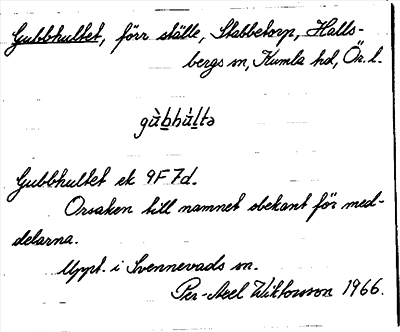 Gubbhultet, förr ställe, Stabbetorp, Halls-
bergs sn, Kumla hd, Ör. l.
gùbhúltə
Gubbhultet ek 9F 7d.
Orsaken till namnet obekant för med-
delarna.
Uppt. i Svennevads sn.
Per-Axel Wiktorsson 1966.